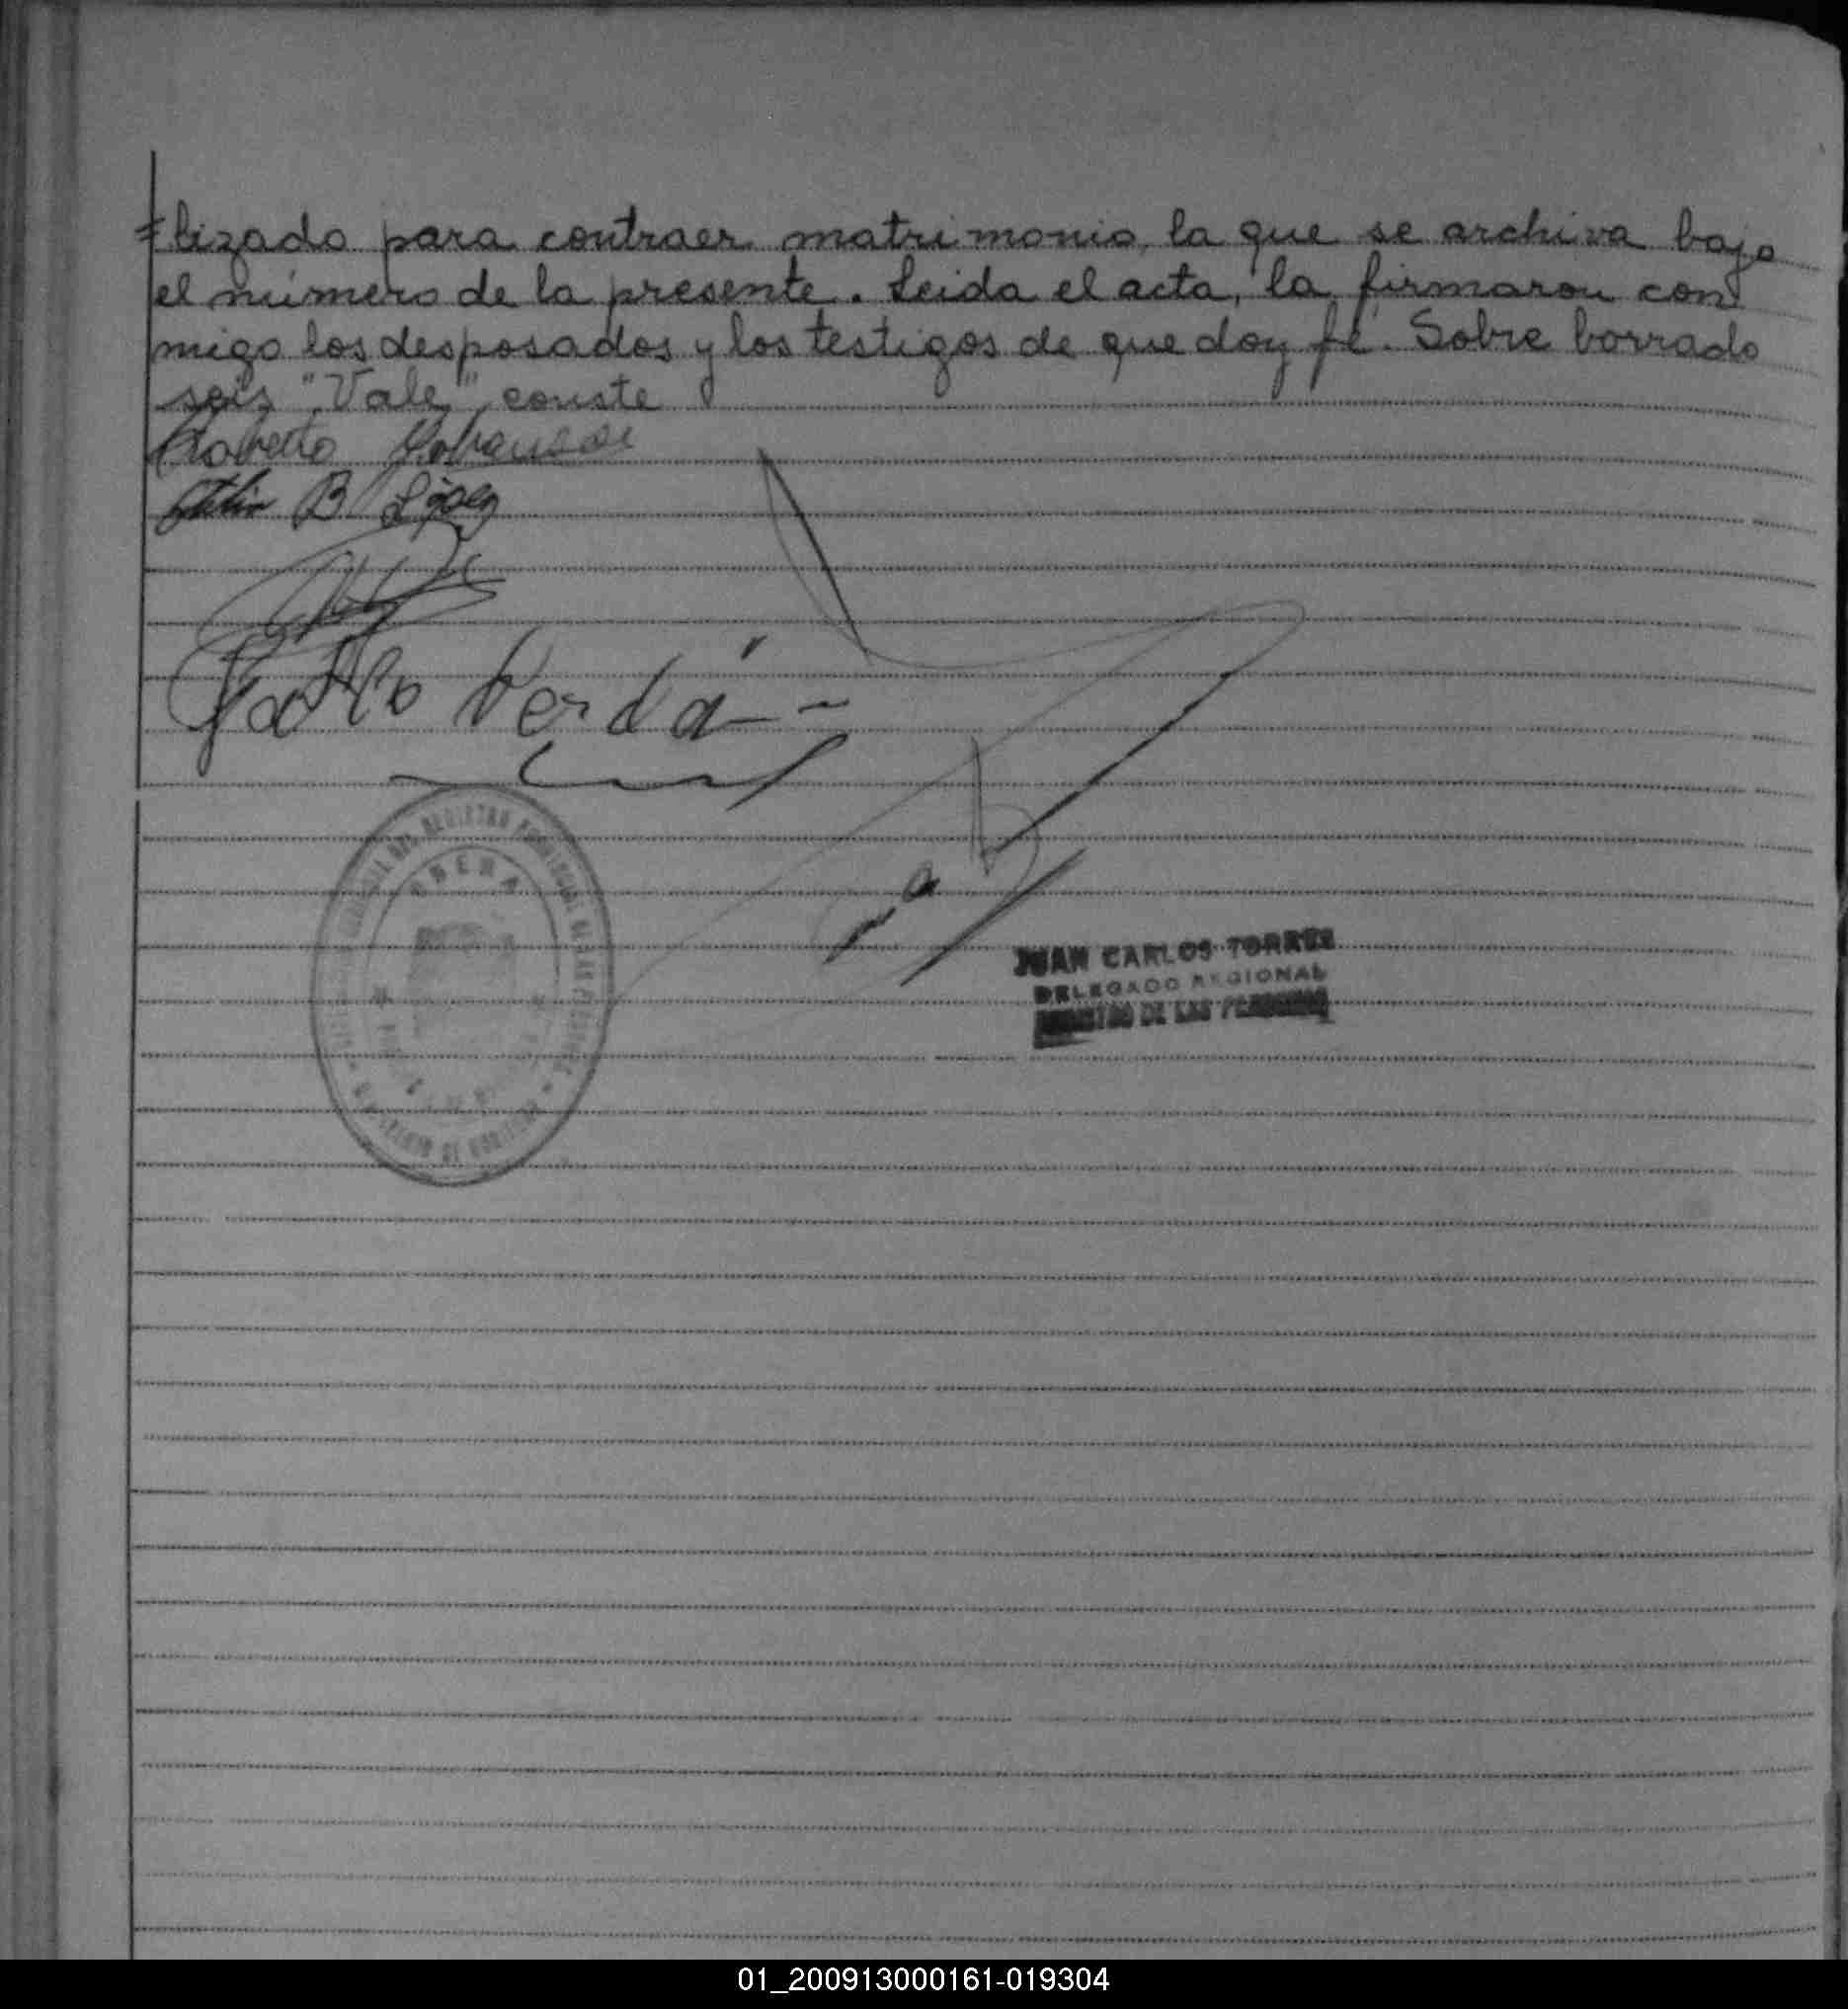 =lizado para contraer matrimonio, la que se archiva bajo
el número de la presente. Leida el acta, la firmaron con
migo los desposados y los testigos de que doy fé. Sobre borrado
seis "Vale", conste
Roberto
B López
Verdá
OBERA
JUAN CARLOS TORRES
DELEGADO REGIONAL
REGISTRO DE LAS PERSONAS
01_200913000161-019304